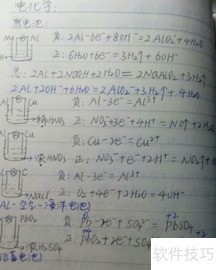 电化学:
原电池:
Mg Al 负: 2Al-6e⁻+8OH⁻=2AlO₂⁻+4H₂O
正: 6H₂O+6e⁻=3H₂↑+6OH⁻
总: 2Al+2NaOH+2H₂O=2NaAlO₂+3H₂↑
2Al+2OH⁻+6H₂O=2AlO₂⁻+3H₂↑+4H₂O
Al Cu 负: Al-3e⁻=Al³⁺
稀HNO₃ 正: NO₃⁻+3e⁻+4H⁺=NO↑+2H₂O
Al Cu 负: Cu-2e⁻=Cu²⁺
浓HNO₃ 正: NO₃⁻+e⁻+2H⁺=NO₂↑+H₂O
Al C 负: Al-3e⁻=Al³⁺
NaCl 正: O₂+4e⁻+2H₂O=4OH⁻
Al-空气-海洋电池)
PbO₂ 负: Pb-2e⁻+SO₄²⁻=PbSO₄
正: PbO₂+2e⁻+SO₄
浓H₂SO₄
铅蓄电池)
软件技巧